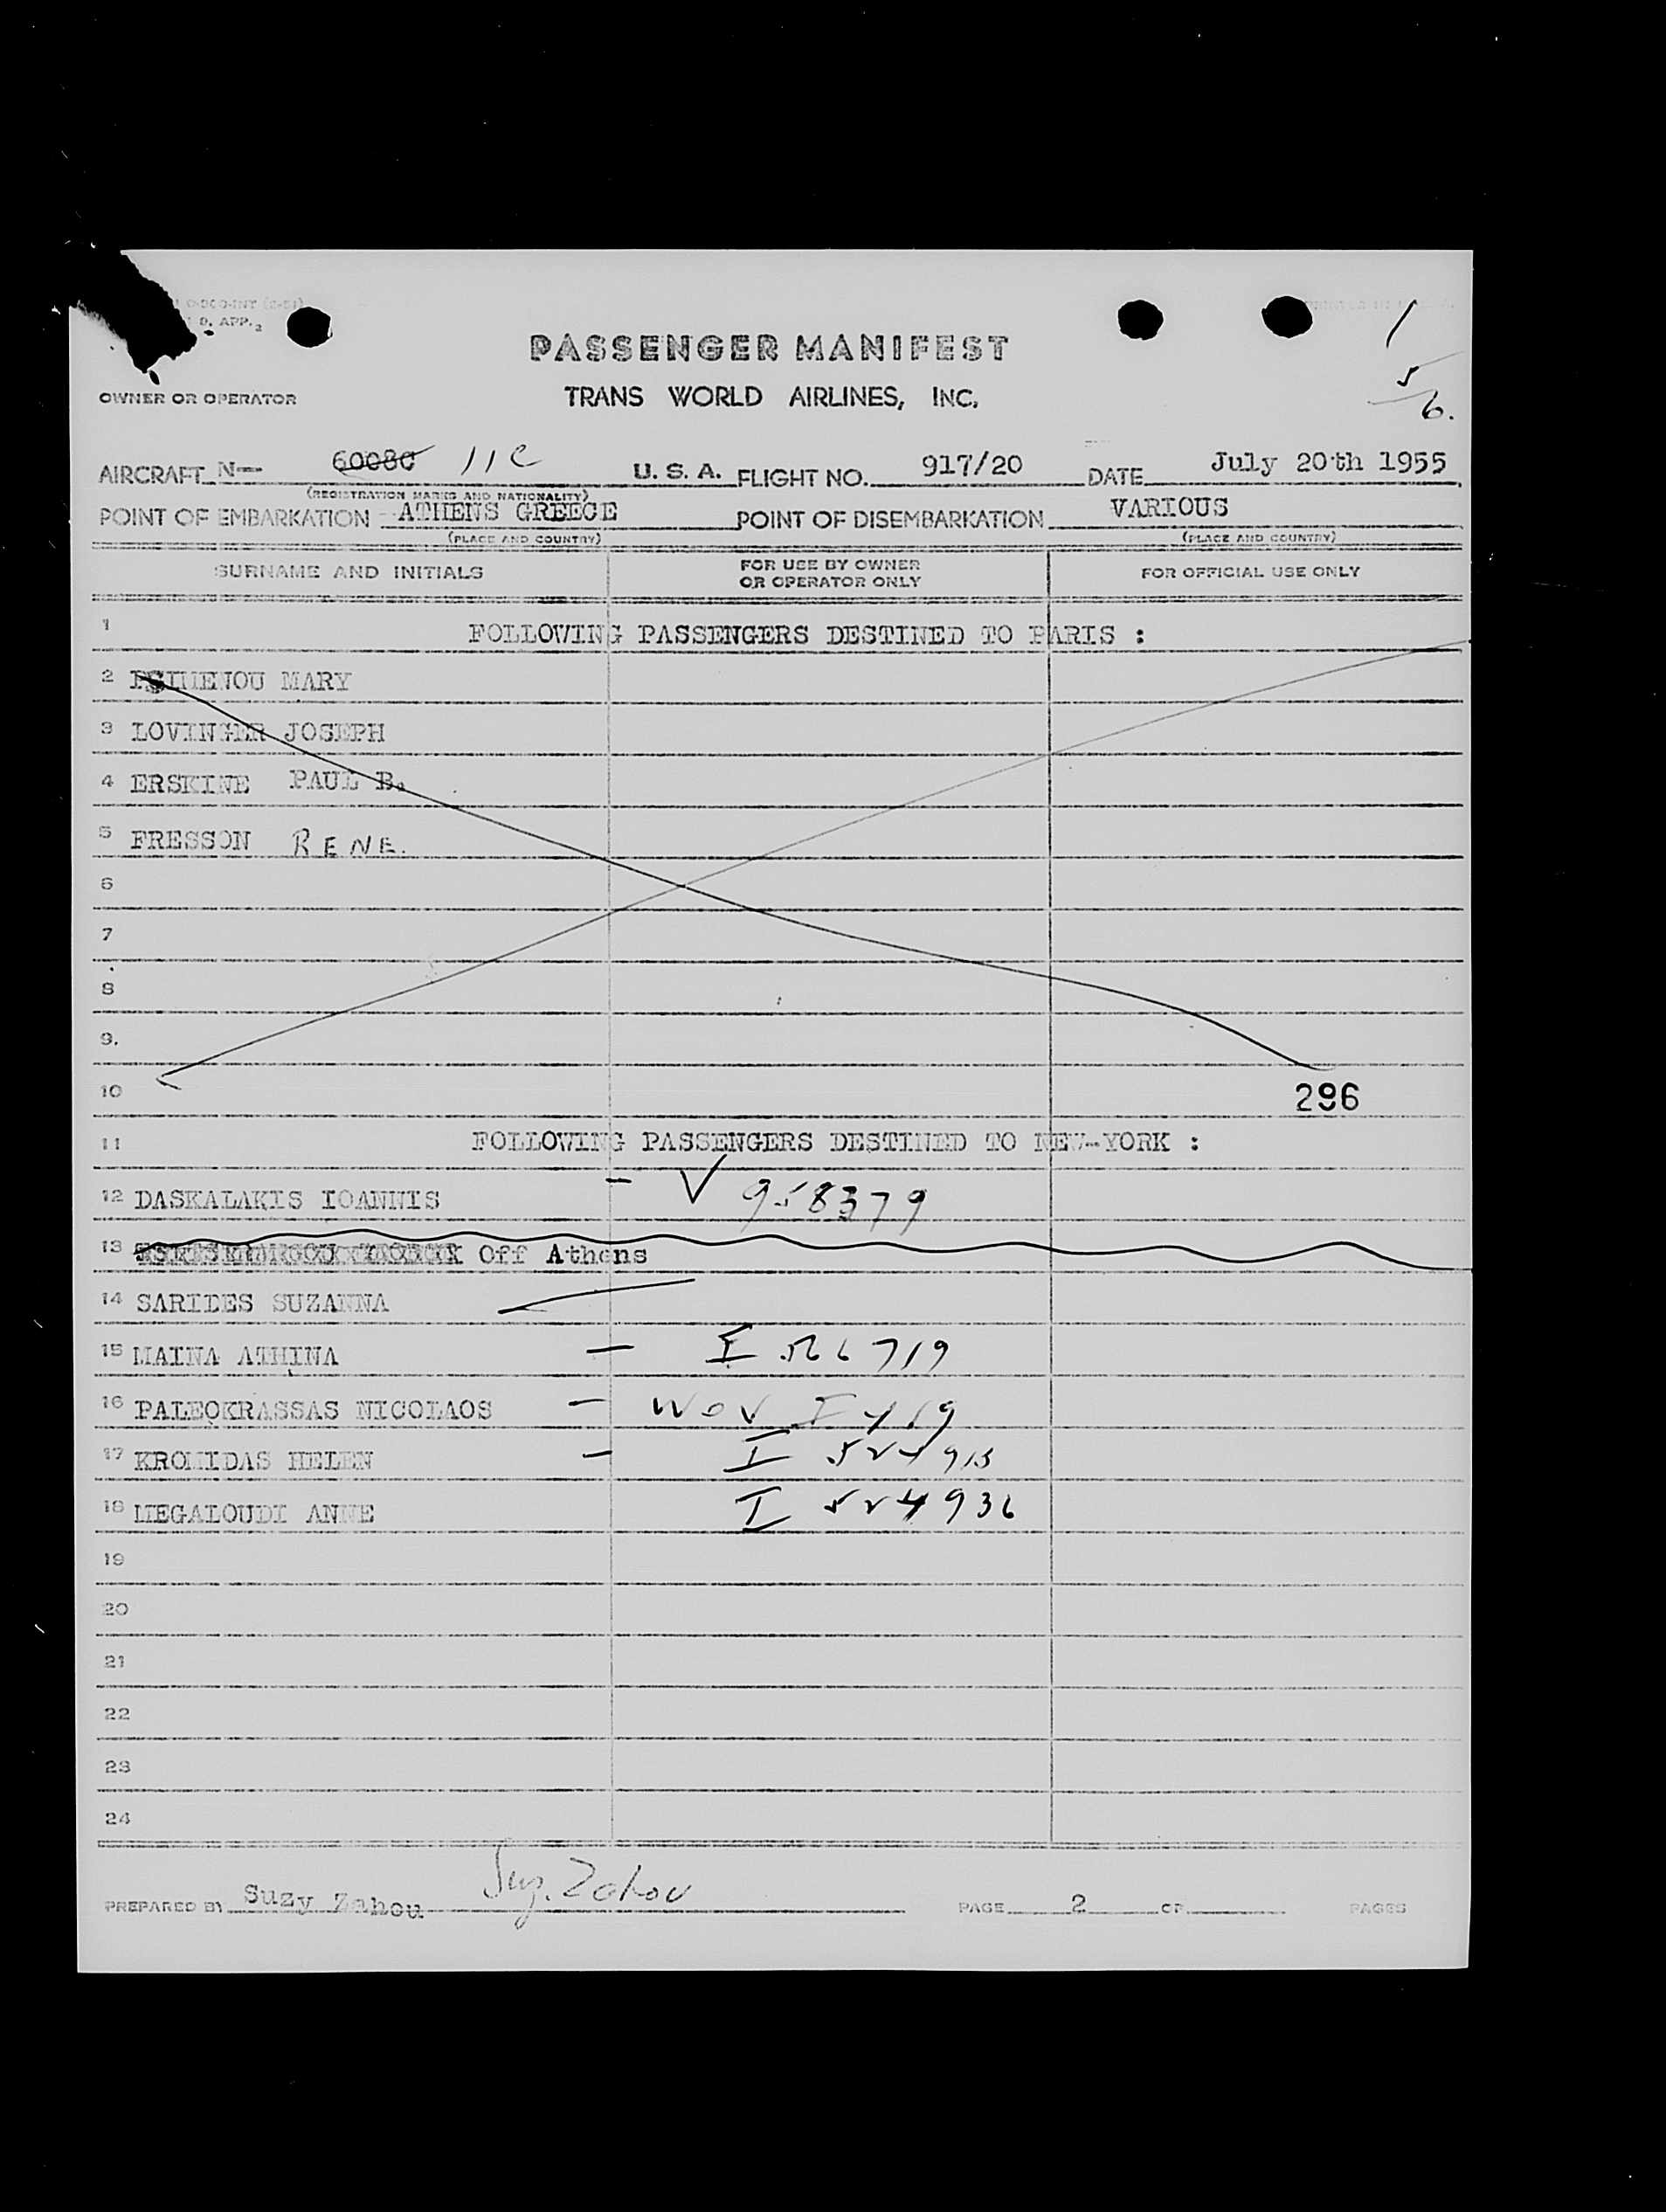 D. APP. 2
PASSENGER MANIFEST
OWNER OR OPERATOR
TRANS WORLD AIRLINES, INC.
1
5
6.
AIRCRAFT N— 6008C 11C U. S. A. FLIGHT NO. 917/20 DATE July 20th 1955
(REGISTRATION MARKS AND NATIONALITY)
POINT OF EMBARKATION - ATHENS GREECE POINT OF DISEMBARKATION VARIOUS
(PLACE AND COUNTRY) (PLACE AND COUNTRY)
SURNAME AND INITIALS FOR USE BY OWNER OR OPERATOR ONLY FOR OFFICIAL USE ONLY
1 FOLLOWING PASSENGERS DESTINED TO PARIS :
2 MARY
3 LOVINGER JOSEPH
4 ERSKINE PAUL B.
5 FRESSON RENE.
6
7
8
9.
10 296
11 FOLLOWING PASSENGERS DESTINED TO NEW-YORK :
12 DASKALAKIS IOANNIS - V 958379
13 Off Athens
14 SARIDES SUZANNA
15 MAINA ATHINA — I 566719
16 PALEOKRASSAS NICOLAOS -
17 KROMIDAS HELEN - I 524913
18 MEGALOUDI ANNE I 524936
19
20
21
22
23
24
PREPARED BY Suzy Zahou Suz. Zahou PAGE 2 OF PAGES